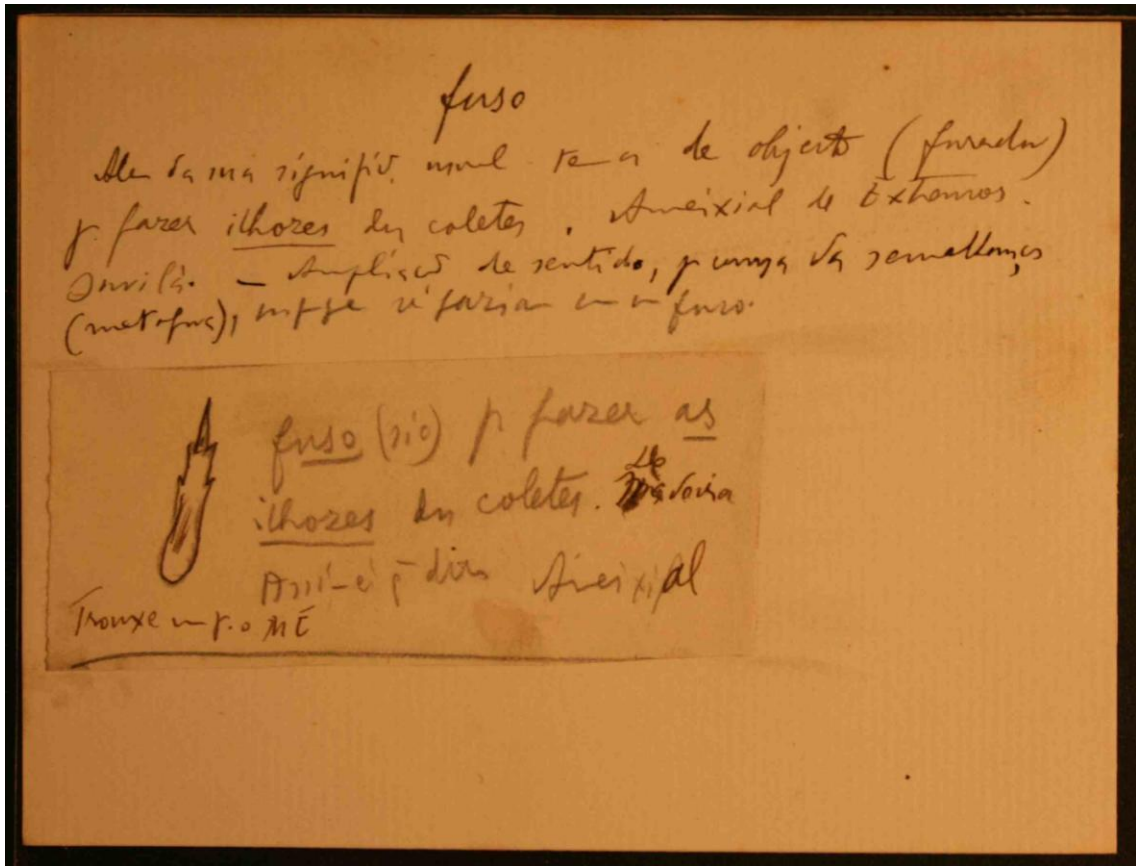 fuso
Alem da sua signific. usual tem a de objecto (furador)
p. fazer ilhozes dos coletes. Ameixial de Extremoz.
Ampliaçaõ de sentido, p causa da semelhança
(metafora), se faziam com um fuso.
fuso (sic) p fazer as
ilhozes dos coletes. De
Assi-é q̃ dizem Ameixial
Trouxe um p. o ME